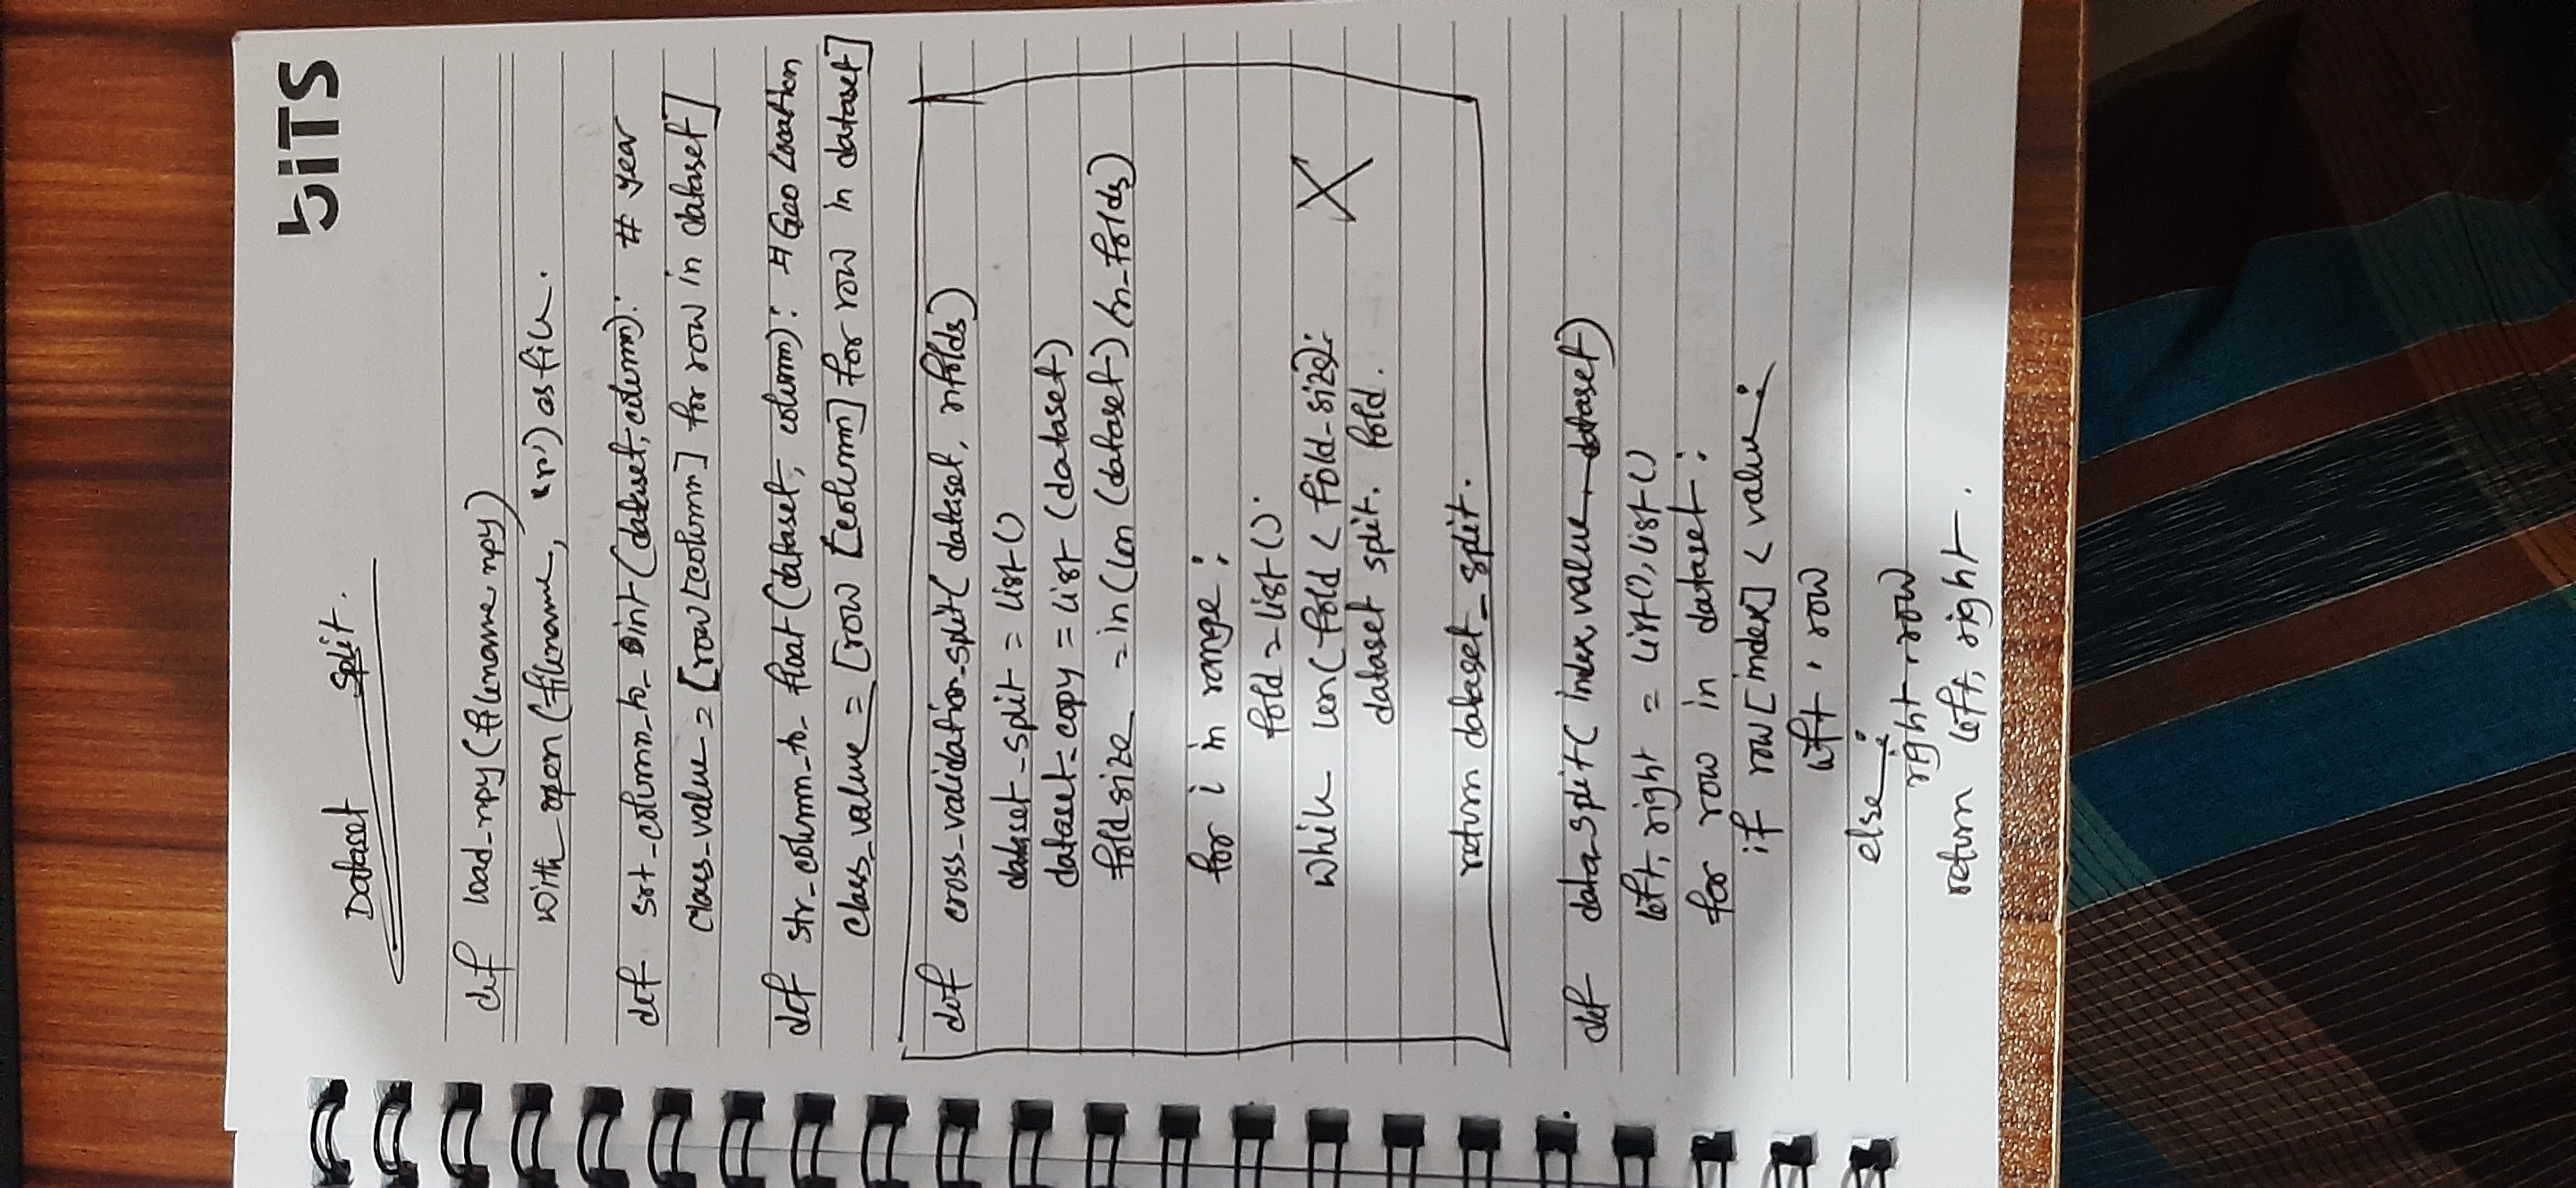 biTS
Dataset Split.
def load_npy(filename.npy)
with open(filename, "r") as file.
def srt_column_to_int(dataset, column): # year
class_value = [row[column] for row in dataset]
def str_column_to_float(dataset, column): # Geo Location
class_value = [row [column] for row in dataset]
def cross_validation_split( dataset, nfolds)
dataset_split = list()
dataset_copy = list (dataset)
fold size = in (len (dataset) /n_folds)
for i in range :
fold = list().
while len( fold < fold_size):
dataset split. fold.
X
return dataset_split.
def data split( index, value, dataset)
left, right = list(), list()
for row in dataset :
if row [index] < value :
left . row
else :
right . row
return left, right .